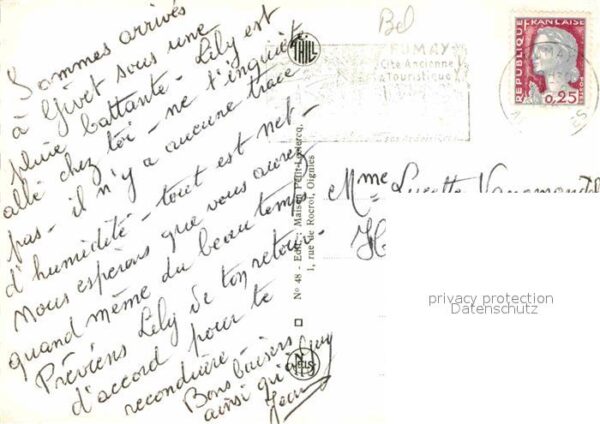 Sommes arrivés
à Givet sous une
pluie battante - Lily est
allé chez toi - ne t'inquiète
pas - il n'y a aucune trace
d'humidité - tout est net -
Nous espérons que vous aurez
quand même du beau temps
Préviens Lily de ton retour
d'accord pour te
reconduire -
Bons baisers
ainsi qu'à
THILL
N° 48 - Edit.: Maison Petit-Leclercq,
1, rue de Rocroi, Oignies
Bel
FUMAY
Cité Ancienne
Touristique
REPUBLIQUE
FRANÇAISE
POSTES
0,25
Mme Lucette
privacy protection
Datenschutz